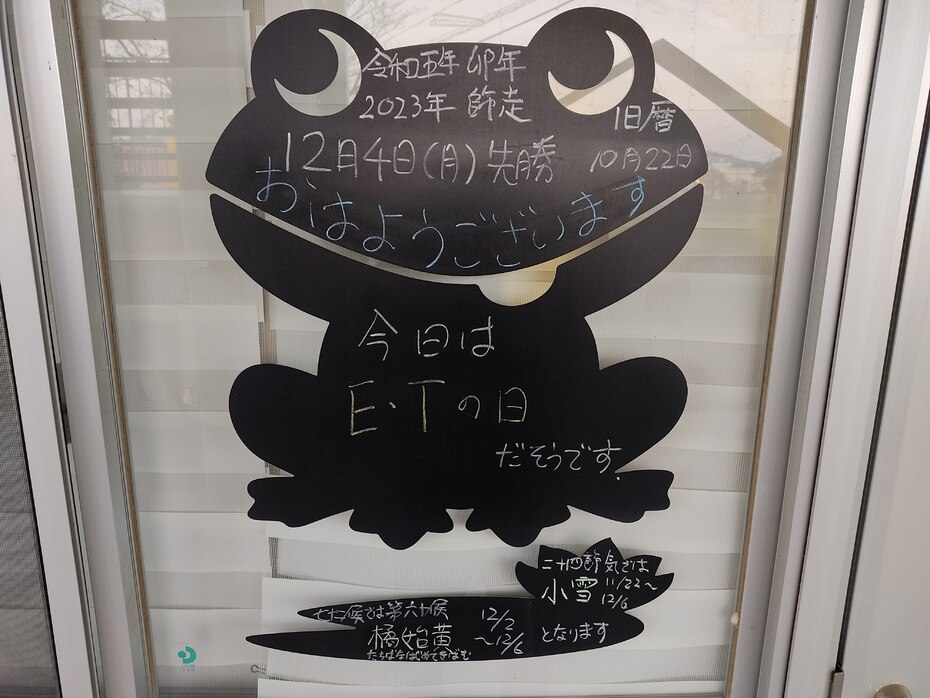 令和五年 卯年
2023年 師走
旧暦
12月4日(月)先勝 10月22日
おはようございます
今日は
E.Tの日
だそうです.
二十四節気では
小雪 11/22～
12/6
七十二候では第六十候 12/2
橘始黄 ～12/6 となります
たちばなはじめてきばむ